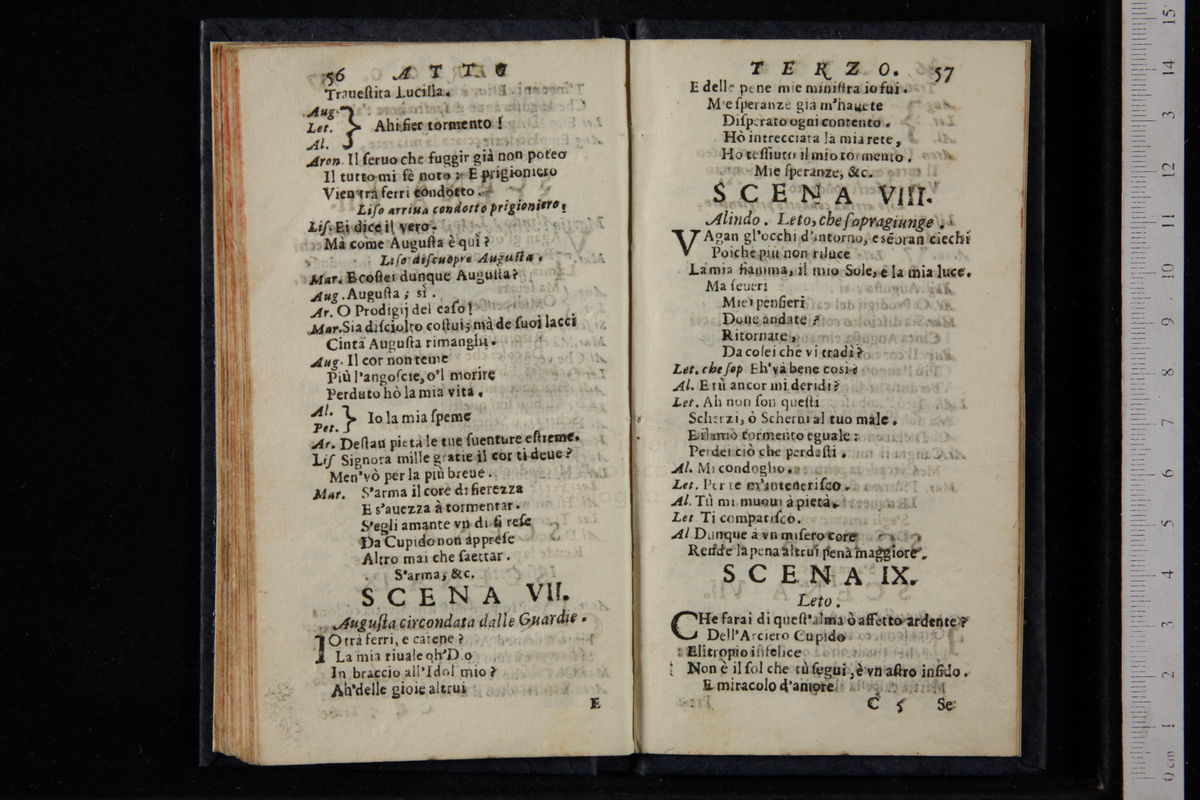 56 ATTO
Traueſtita Lucilla.
Aug.
Let. } Ahi fier tormento!
Al.
Aron. Il ſeruo che fuggir già non poteo
Il tutto mi fè noto: E prigioniero
Vien trà ferri condotto.
Liſo arriua condotto prigioniero.
Liſ. Ei dice il vero.
Mà come Auguſta è quì?
Liſo diſcuopre Auguſta.
Mar. E coſtei dunque Auguſta?
Aug. Auguſta; sì.
Ar. O Prodigij del caſo!
Mar. Sia diſciolto coſtui; mà de ſuoi lacci
Cinta Auguſta rimanghi.
Aug. Il cor non teme
Più l'angoſcie, o'l morire
Perduto hò la mia vita.
Al.
Pet. } Io la mia ſpeme
Ar. Deſtan pietà le tue ſuenture eſtreme.
Liſ Signora mille gratie il cor ti deue?
Men'vò per la più breue.
Mar. S'arma il core di fierezza
E s'auezza à tormentar.
S'egli amante vn dì ſi reſe
Da Cupido non appreſe
Altro mai che ſaettar.
S'arma, &c.
SCENA VII.
Auguſta circondata dalle Guardie.
IO trà ferri, e catene?
La mia riuale oh' D o
In braccio all'Idol mio?
Ah' delle gioie altrui
E
TERZO. 57
E delle pene mie miniſtra io fui.
Mie ſperanze già m'hauete
Diſperato ogni contento.
Hò intrecciata la mia rete,
Ho teſſiuto il mio tormento.
Mie ſperanze, &c.
SCENA VIII.
Alindo. Leto, che ſopragiunge.
VAgan gl'occhi d'intorno, e sẽbran ciechi
Poiche più non riluce
La mia fiamma, il mio Sole, e la mia luce.
Ma ſeueri
Miei penſieri
Doue andate?
Ritornate,
Da colei che vi tradì?
Let. che ſop Eh' và bene così?
Al. E tù ancor mi deridi?
Let. Ah non ſon queſti
Scherzi, ò Scherni al tuo male.
E il mio tormento eguale:
Perdei ciò che perdeſti.
Al. Mi condoglio.
Let. Per te m'inteneriſco.
Al. Tù mi muoui à pietà.
Let Ti compatiſco.
Al Dunque à vn miſero core
Rende la pena altrui pena maggiore.
SCENA IX.
Leto.
CHe farai di queſt'alma ò affetto ardente?
Dell'Arciero Cupido
Elitropio infelice
Non è il ſol che tù ſegui, è vn aſtro infido.
E miracolo d'amore
C 5 Se